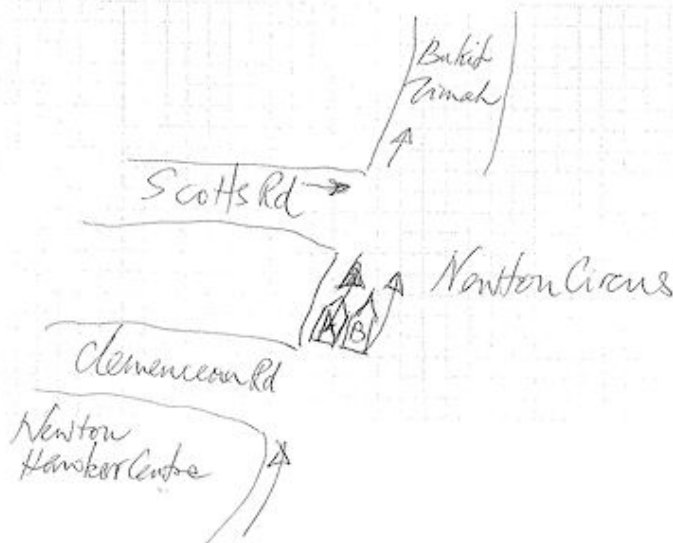 Bukit
Timah
Scotts Rd
Newton Circus
A B
Clemenceau Rd
Newton
Hawker Centre